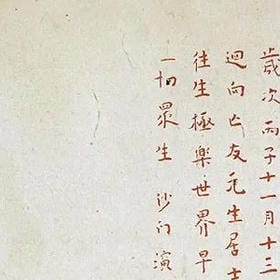 歲次丙子十一月十三
迴向亡友元生居士
往生極樂世界早
一切眾生 沙門演